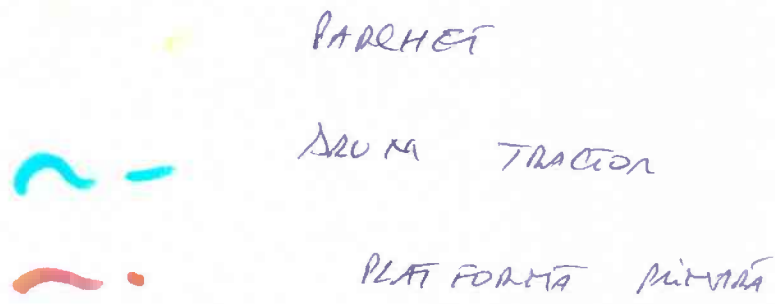 PARCHET
DRUM TRACTOR
PLATFORMĂ PRIMARĂ